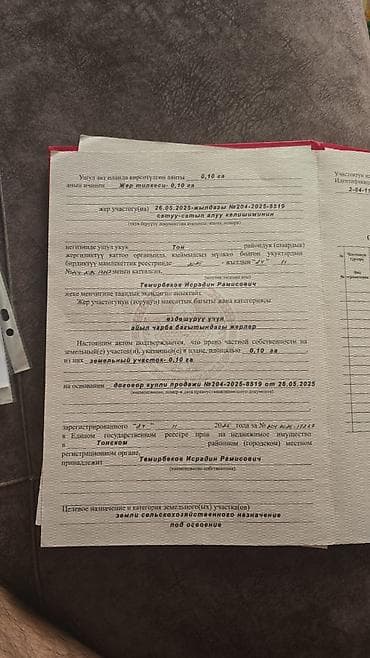 Ушул акт планда көрсөтүлгөн аянты 0,10 га
анын ичинен Жер тилкеси- 0,10 га
жер участогу(на) 26.05.2025-жылдагы №204-2025-8519
сатуу-сатып алуу келишиминин
негизинде ушул укук Тон райондук (шаардык)
жергиликтүү каттоо органында, кыймылсыз мүлккө болгон укуктардын
бирдиктүу мамлекеттик реестринде
менен катталган,
Темирбеков Исрадин Рамисович
жеке менчигине таандык экендигин ырастайт.
Жер участогунун (коруңун) максаттык багыты жана категориясы
өздөштүрүү үчүн
айыл чарба багытындагы жерлер
Настоящим актом подтверждается, что право частной собственности на
земельный(е) участок(и), указанный(е) в плане, площадью 0,10 га
из них земельный участок- 0,10 га
на основании договор купли продажи №204-2025-8519 от 26.05.2025
(наименование, номер и дата правоустанавливающего документа)
зарегистрированного 11 года за №
в Едином государственном реестре прав на недвижимое имущество
в Тонском районном (городском) местном
регистрационном органе,
принадлежит Темирбеков Исрадин Рамисович
(наименование собственника)
Целевое назначение и категория земельного(ых) участка(ов)
земли сельскохозяйственного назначение
под освоение
Участоктун
Идентифика